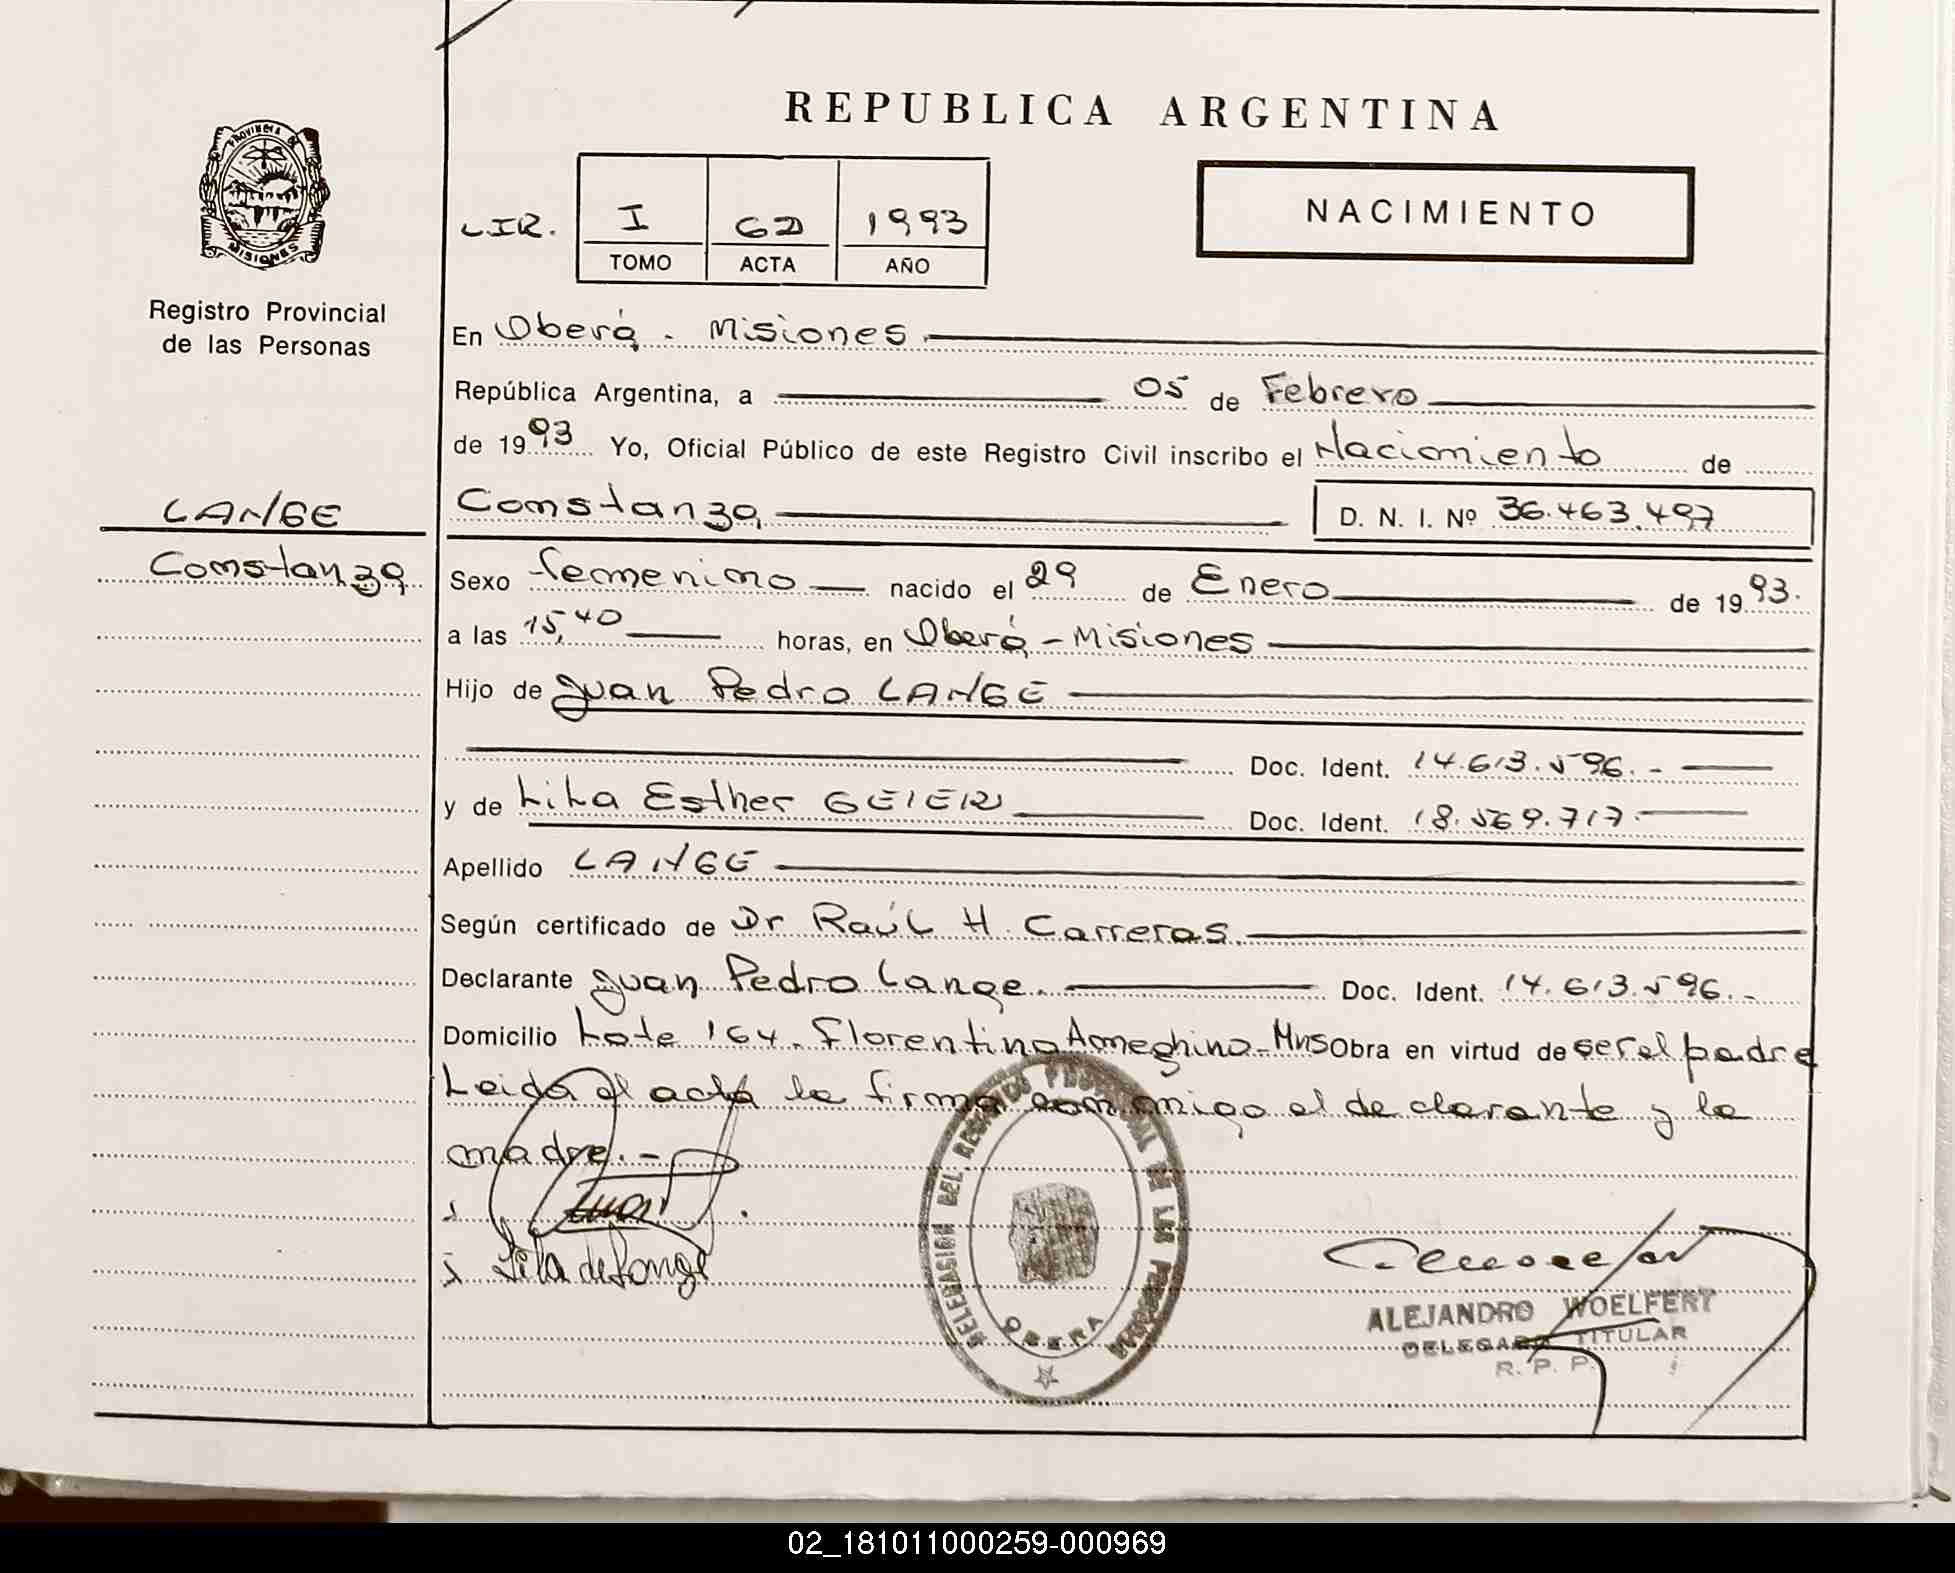 REPUBLICA ARGENTINA
PROVINCIA DE
MISIONES
Registro Provincial
de las Personas
LIR. I 62 1993
TOMO ACTA AÑO
NACIMIENTO
En Oberá - Misiones
República Argentina, a 05 de Febrero
de 1993 Yo, Oficial Público de este Registro Civil inscribo el Nacimiento de
LANGE
Constanza
Constanza D. N. I. Nº 36.463.497
Sexo femenino nacido el 29 de Enero de 1993.
a las 15,40 horas, en Oberá - Misiones
Hijo de Juan Pedro LANGE
Doc. Ident. 14.613.596.-
y de Lila Esther GEIER Doc. Ident. 18.569.717.
Apellido LANGE
Según certificado de Dr Raúl H. Carreras.
Declarante Juan Pedro Lange. Doc. Ident. 14.613.596.-
Domicilio Lote 164. Florentino Ameghino - Mns Obra en virtud de ser el padre
Leida el acta la firma conmigo el declarante y la
madre.-
Juan
Lila de Lange
DELEGASION DEL REGISTRO PROVINCIAL DE LAS PERSONAS
OBERA
ALEJANDRO WOELFERT
DELEGADO TITULAR
R. P. P.
02_181011000259-000969